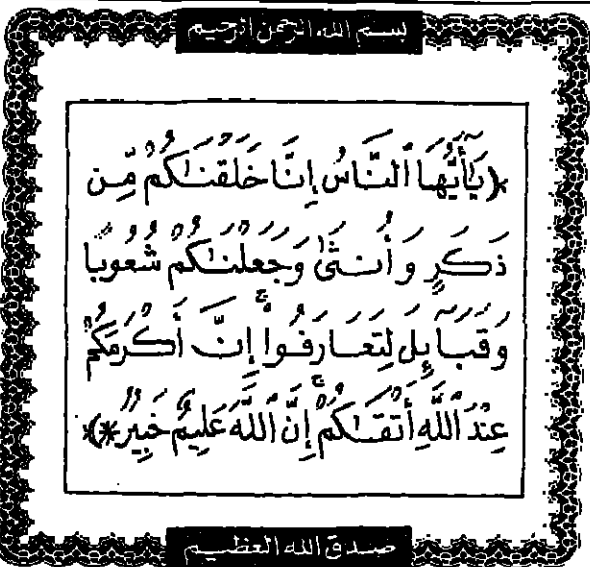 بسم الله الرحمن الرحيم
﴿يَٰٓأَيُّهَا ٱلنَّاسُ إِنَّا خَلَقْنَـٰكُم مِّن
ذَكَرٍ وَأُنثَىٰ وَجَعَلْنَـٰكُمْ شُعُوبًا
وَقَبَآئِلَ لِتَعَارَفُوٓا۟ إِنَّ أَكْرَمَكُمْ
عِندَ ٱللَّهِ أَتْقَـٰكُمْ إِنَّ ٱللَّهَ عَلِيمٌ خَبِيرٌ﴾
صدق الله العظيم